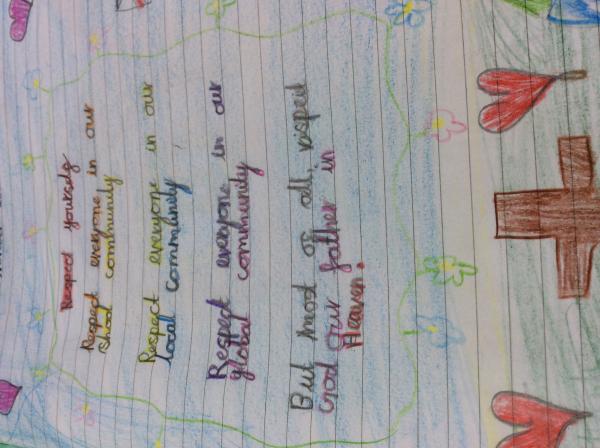 Respect yourself
Respect everyone in our
Shool community
Respect everyone in our
local community
Respect everyone in our
global community
But most of all, respect
God our father in
Heaven.